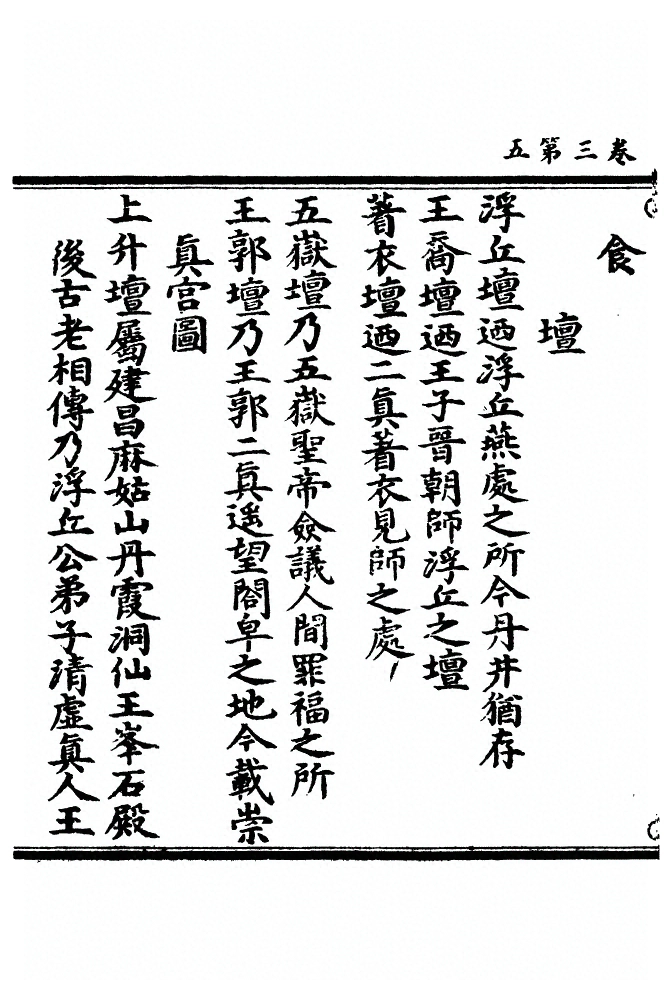 卷三第五
食
壇
浮丘壇迺浮丘燕處之所今丹井猶存
王喬壇迺王子晉朝師浮丘之壇
著衣壇迺二眞著衣見師之處
五嶽壇乃五嶽聖帝僉議人間罪福之所
王郭壇乃王郭二眞遥望閤皁之地今載崇
眞宫圖
上升壇屬建昌麻姑山丹霞洞仙王峯石殿
後古老相傳乃浮丘公弟子清虛眞人王